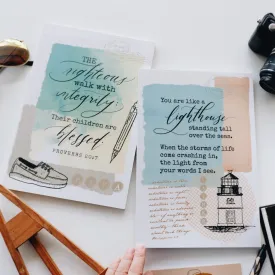 THE
righteous
walk with
integrity
Their children are
blessed
PROVERBS 20:7
You are like a
lighthouse
standing tall
over the seas.
When the storms of life
come crashing in,
the light from
your words I see.